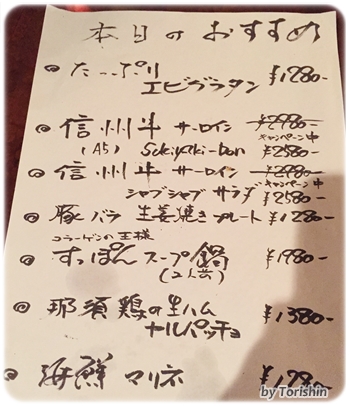 本日のおすすめ
◎ たっぷり
エビグラタン ¥1280-
◎ 信州牛 サーロイン ¥2980-
キャンペーン中
(A5) Sukiyaki-bon ¥2580-
◎ 信州牛 サーロイン ¥2980-
キャンペーン中
シャブシャブ サラダ ¥2580-
◎ 豚バラ 生姜焼きプレート ¥1280-
コラーゲンの王様
◎ すっぽんスープ鍋 ¥1980-
(2人前)
◎ 那須鶏の生ハム
カルパッチョ ¥1380-
◎ 海鮮マリネ ¥1280-
by Torishin